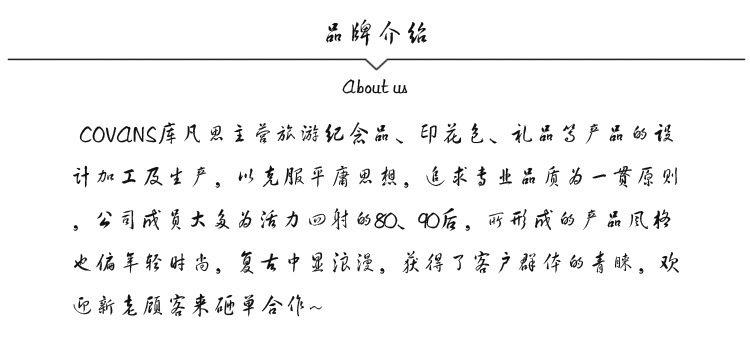 品牌介绍
About us
COVANS库凡思主营旅游纪念品、印花色、礼品等产品的设
计加工及生产，以克服平庸思想，追求专业品质为一贯原则
，公司成员大多为活力四射的80、90后，所形成的产品风格
也偏年轻时尚，复古中显浪漫，获得了客户群体的青睐，欢
迎新老顾客来砸单合作~